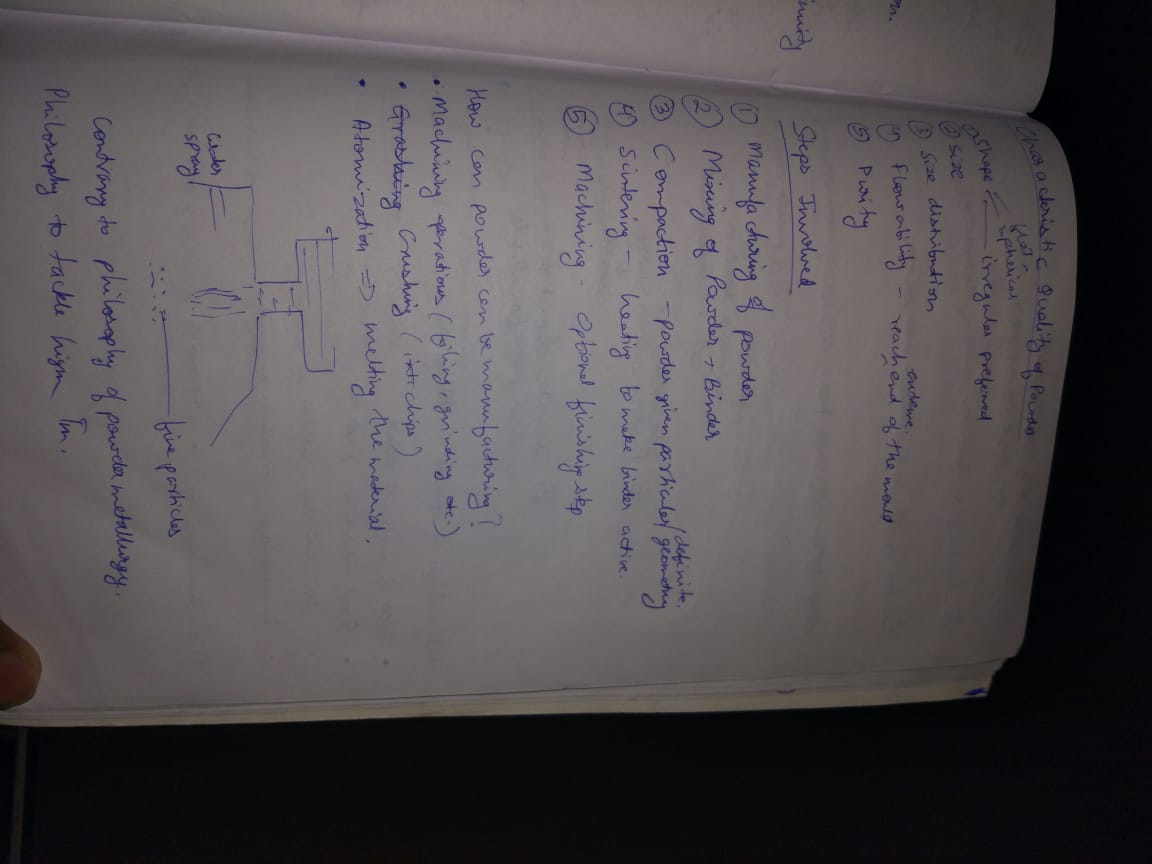 Characteristic Quality of Powder
flat
spherical
① Shape irregular preferred
② Size
③ Size distribution
extreme
④ Flowability - reach end of the mould
⑤ Purity
on.
Steps Involved
① Manufacturing of powder
② Mixing of Powder + Binder
③ Compaction - powder given particular/definite geometry
④ Sintering - heating to make binder active.
⑤ Machining - Optional finishing step
How can powder can be manufacturing?
• Machining operations (filing, grinding etc.)
• Crushing (into chips)
• Atomization ⇒ melting the material.
water
spray
fine particles
Contrary to philosophy of powder metallurgy.
Philosophy to tackle high Tm.